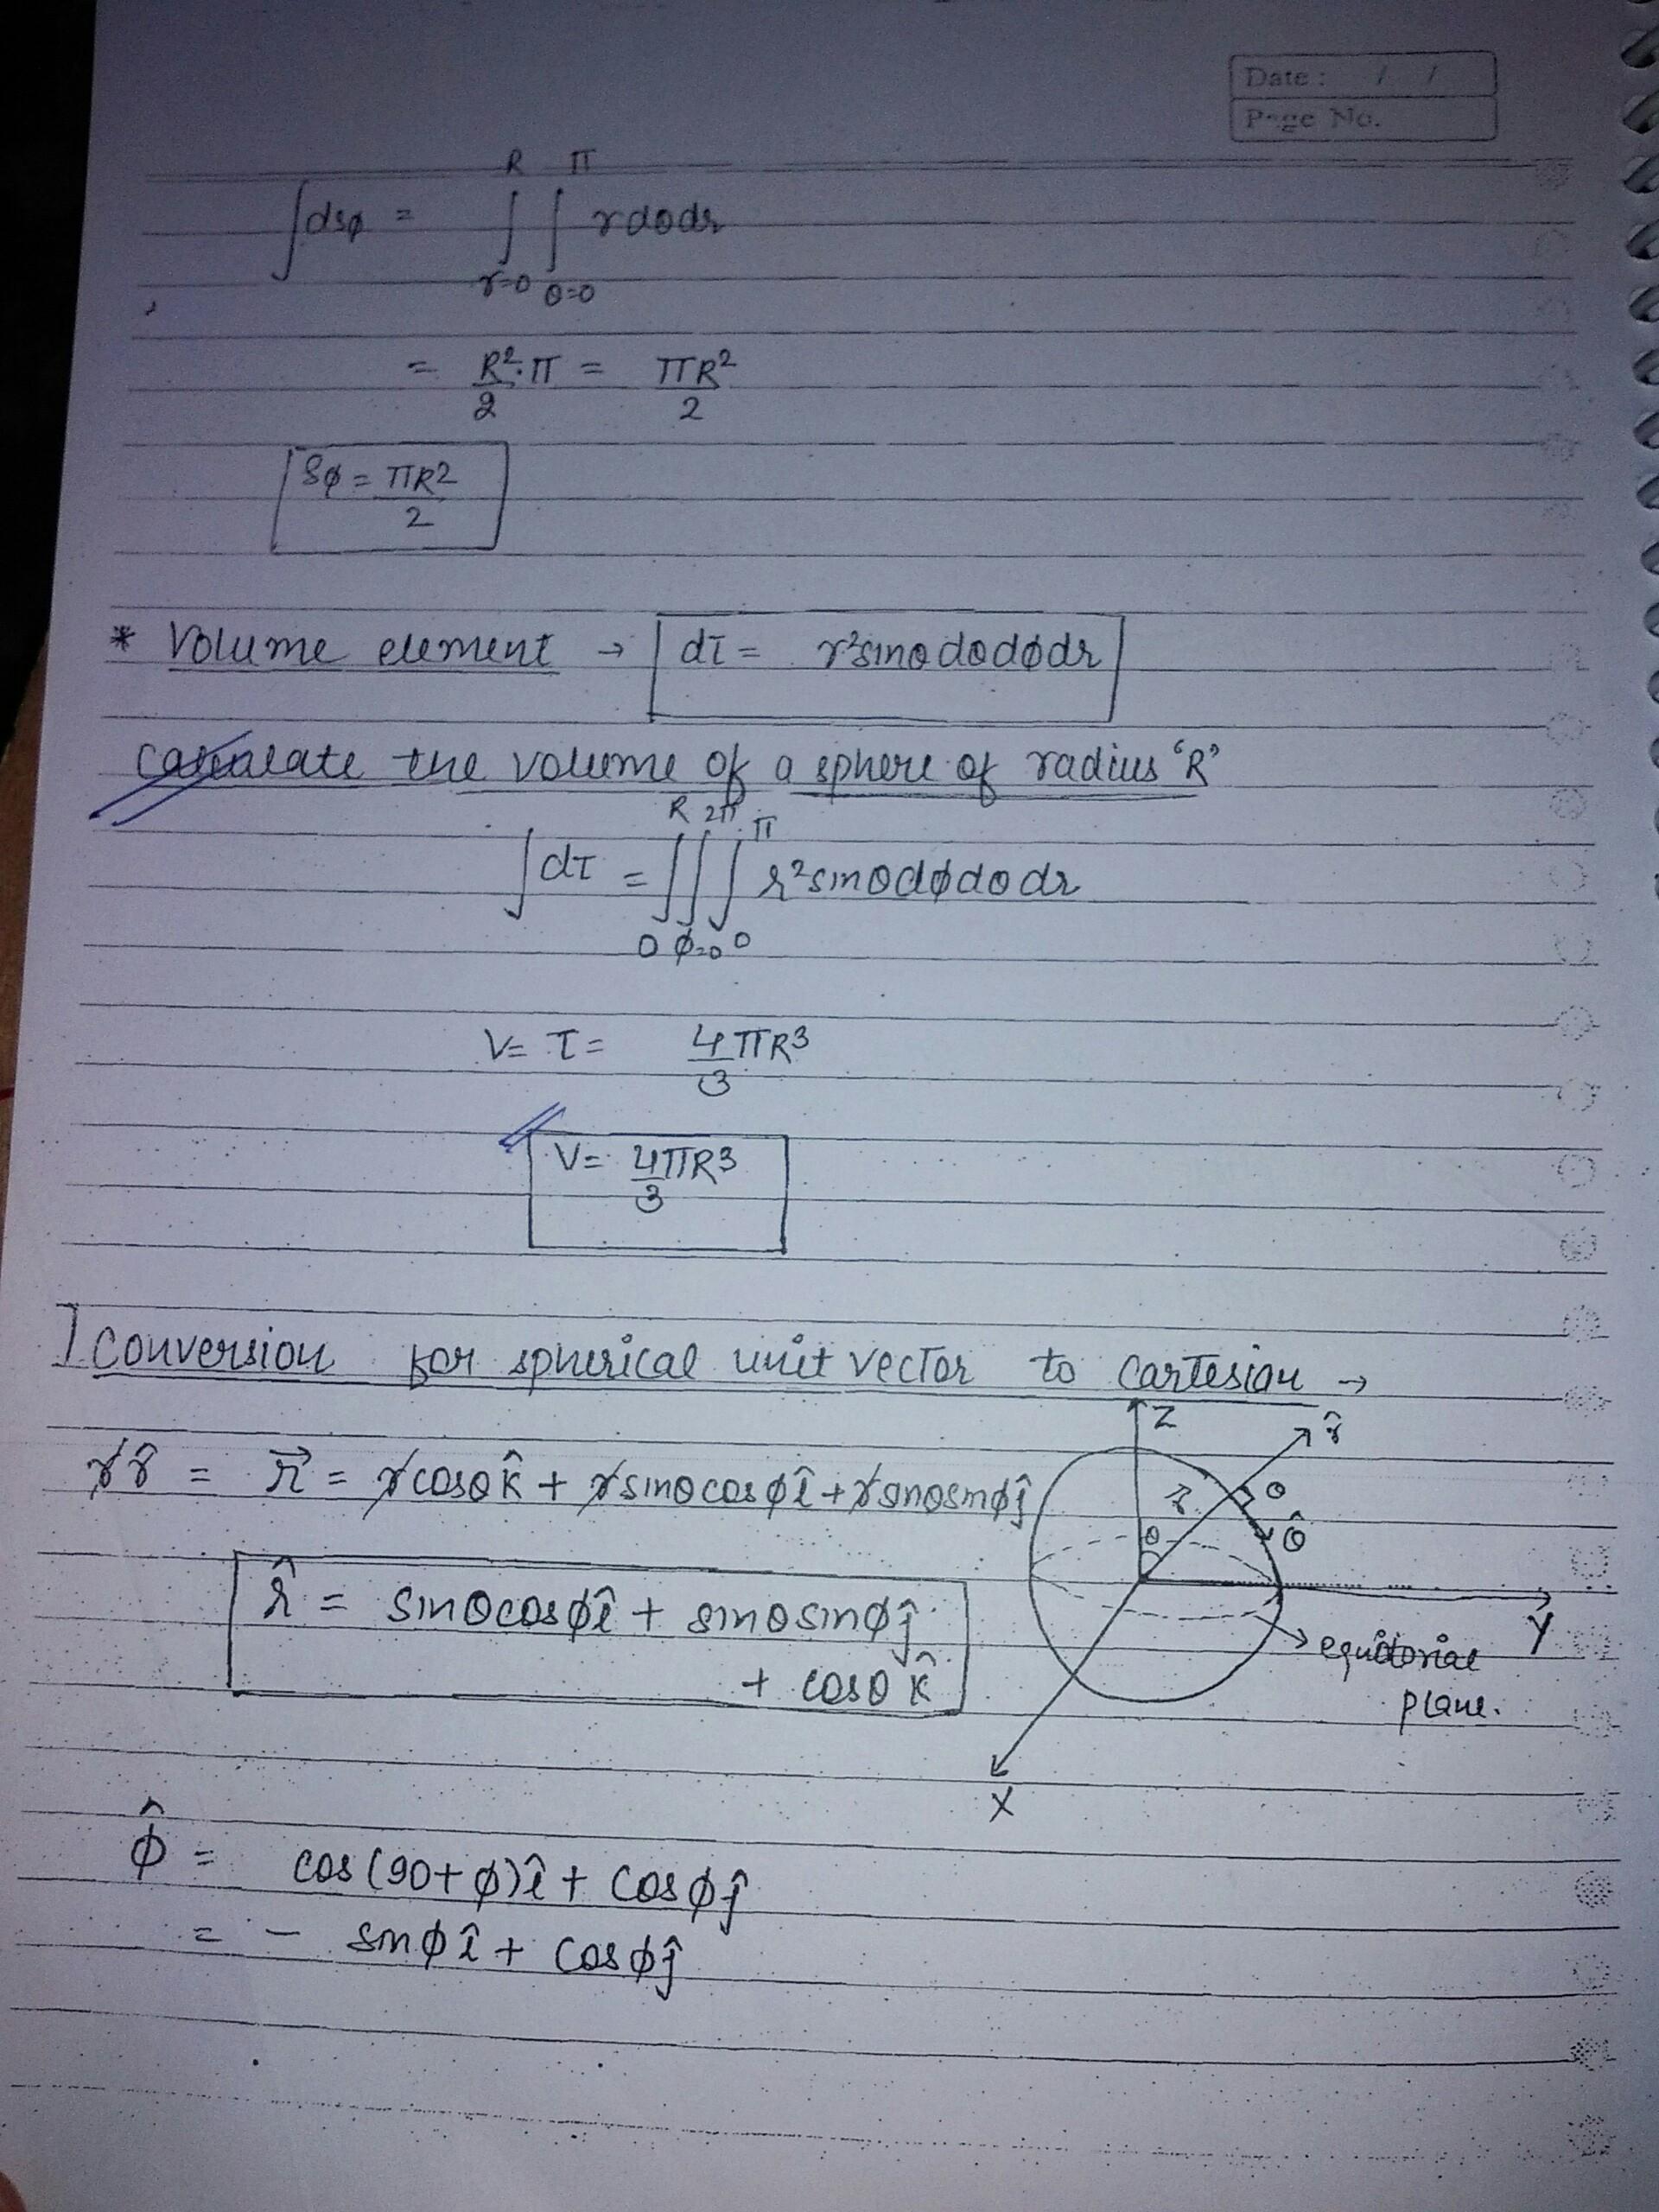 Date : / /
Page No.
∫dsϕ = ∫_{r=0}^{R} ∫_{θ=0}^{π} r dθ dr
= R²/2 · π = πR²/2
Sϕ = πR²/2
* Volume element → dτ = r²sinθ dθ dϕ dr
Calculate the volume of a sphere of radius 'R'
∫dτ = ∫_{0}^{R} ∫_{ϕ=0}^{2π} ∫_{0}^{π} r²sinθ dϕ dθ dr
V = τ = 4/3 πR³
V = 4/3 πR³
] Conversion for spherical unit vector to cartesian →
r r̂ = r⃗ = r cosθ k̂ + r sinθ cosϕ î + r sinθ sinϕ ĵ
r̂ = sinθ cosϕ î + sinθ sinϕ ĵ
+ cosθ k̂
Z
r̂
r
θ
θ
θ̂
Y
equitorial
plane.
X
ϕ̂ = cos(90+ϕ) î + cosϕ ĵ
= - sinϕ î + cosϕ ĵ